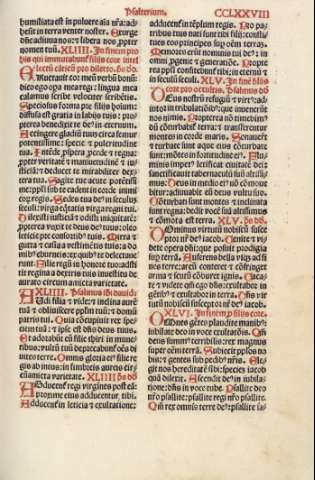 Psalterium. CCLXXVIII
humiliata est in pulvere aĩa nr̃a: ad
hesit in terra venter noster. Exurge
dñe adiuva nos: ⁊ libera nos ꝓpter
nomen tuũ. XLIIII. In finem pro
his qui immutabunt filiis core intel
Eructavit cor meũ verbũ bonũ:
dico ego opa mea regi: lingua mea
calamus scribe velociter scribẽtis.
Speciosus forma pre filiis hominũ
diffusa est gratia in labiis tuis: pro
pterea benedixit te deus in eternum.
Accingere gladio tuo circa femur
potentissime: specie ⁊ pulcritudine
tua. Intẽde ꝓspera ꝓcede ⁊ regna:
ꝓpter veritatẽ ⁊ mansuetudinẽ ⁊ iu-
sticiã: ⁊ deducet te mirabiliter dex-
tera tua. Sagitte tue acute potẽtissi
me: ppli sub te cadent in corde inimi
corũ regis. Sedes tua deus in seculũ
seculi: virga eq̃tatis virga regni tui.
Dilexisti iusticiã ⁊ odisti iniquitatẽ:
ꝓpterea vnxit te deus deus tuus: oleo
leticie pre consortibus tuis. Mirra ⁊
gutta ⁊ casia a vestimẽtis tuis: a do
mibus eburneis: ex quibus te delectauert̃
filie regũ in honore tuo: adsti
tit regina a dextris tuis in vestitu de
aurato circumamicta varietate.
Audi filia ⁊ vide: ⁊ inclina aurẽ
tuã ⁊ obliviscere pplm tuũ: ⁊ domũ
patris tui. Quia cõcupiuit rex spe-
ciem tuã: q̃ ipse est dñs deus tuus.
Et adorabũt eũ filie tyri in mune
ribus: vultũ tuũ deprecabunt̃ oẽs di
vites terre. Omnis gloria eiꝰ filie re
gis ab intus: in fimbriis aureis cir-
cũamicta varietate.
Adducent̃ regi virgines post eã:
proxime eius adducentur tibi.
Adducent̃ in leticia ⁊ exultatione:
adducent̃ in templum regis. Pro pa
tribus tuis nati sunt tibi filii: consti
tues eos principes sup oẽm terrã.
Memores erũt nominis tui dñe: in
omni ꝓgenie ⁊ generatiõe. Propte
rea ppli confitebunt̃ tibi in eternũ:
⁊ in seculũ seculi. XLV. In finẽ filiis
core pro occultis. Psalmus dd
Deus nostrũ refugiũ ⁊ virtꝰ: ad
iutor in tribulatiõibꝰ: que invenerũt
nos nimis. Propterea nõ timebimꝰ
dũ turbabit̃ terra: ⁊ transferentur
montes in corde maris. Sonuerũt
⁊ turbate sunt aque eius: cõturbate
sunt mõtes in fortitudine eiꝰ. Flu
minis impetꝰ letificat civitatẽ dei:
sanctificavit tabernaculũ suũ altissi
mus. Deus in medio eiꝰ nõ cõmove
bit̃: adiuvabit eã deus vultu suo.
Cõturbate sunt gentes ⁊ inclinata
sunt regna: dedit vocẽ suã altissimus
⁊ mota est terra.
Dominus virtutũ nobiscũ: susce
ptor nr̃ deus iacob. Venite ⁊ vi-
dete opera dñi: que posuit prodigia
sup terrã. Auferens bella vsqꝫ ad fi
nes terre: arcũ conteret ⁊ cõfringet
arma: ⁊ scuta cõburet igni. Vaca
te ⁊ videte qm̃ ego sũ deus: exaltabor in
gẽtibus ⁊ exaltabor in terra. Dñs vir
tutũ nobiscũ: susceptor nr̃ deus iacob.
XLVI. In finem p filiis core.
Omnes gẽtes plaudite manibꝰ:
iubilate deo in voce exultatiõis. Qm̃
deus summꝰ terribilis: rex magnus
super oẽm terrã. Subiecit pplos no
bis: ⁊ gentes sub pedibꝰ nr̃is. Ele-
git nos hereditatẽ sibi: speciẽ iacob
quã dilexit. Ascendit deus in iubila-
tione: dñs in voce tube. Psallite deo
nr̃o psallite: psallite regi nr̃o psallite.
Qm̃ rex omnis terre deus: psallite sa-